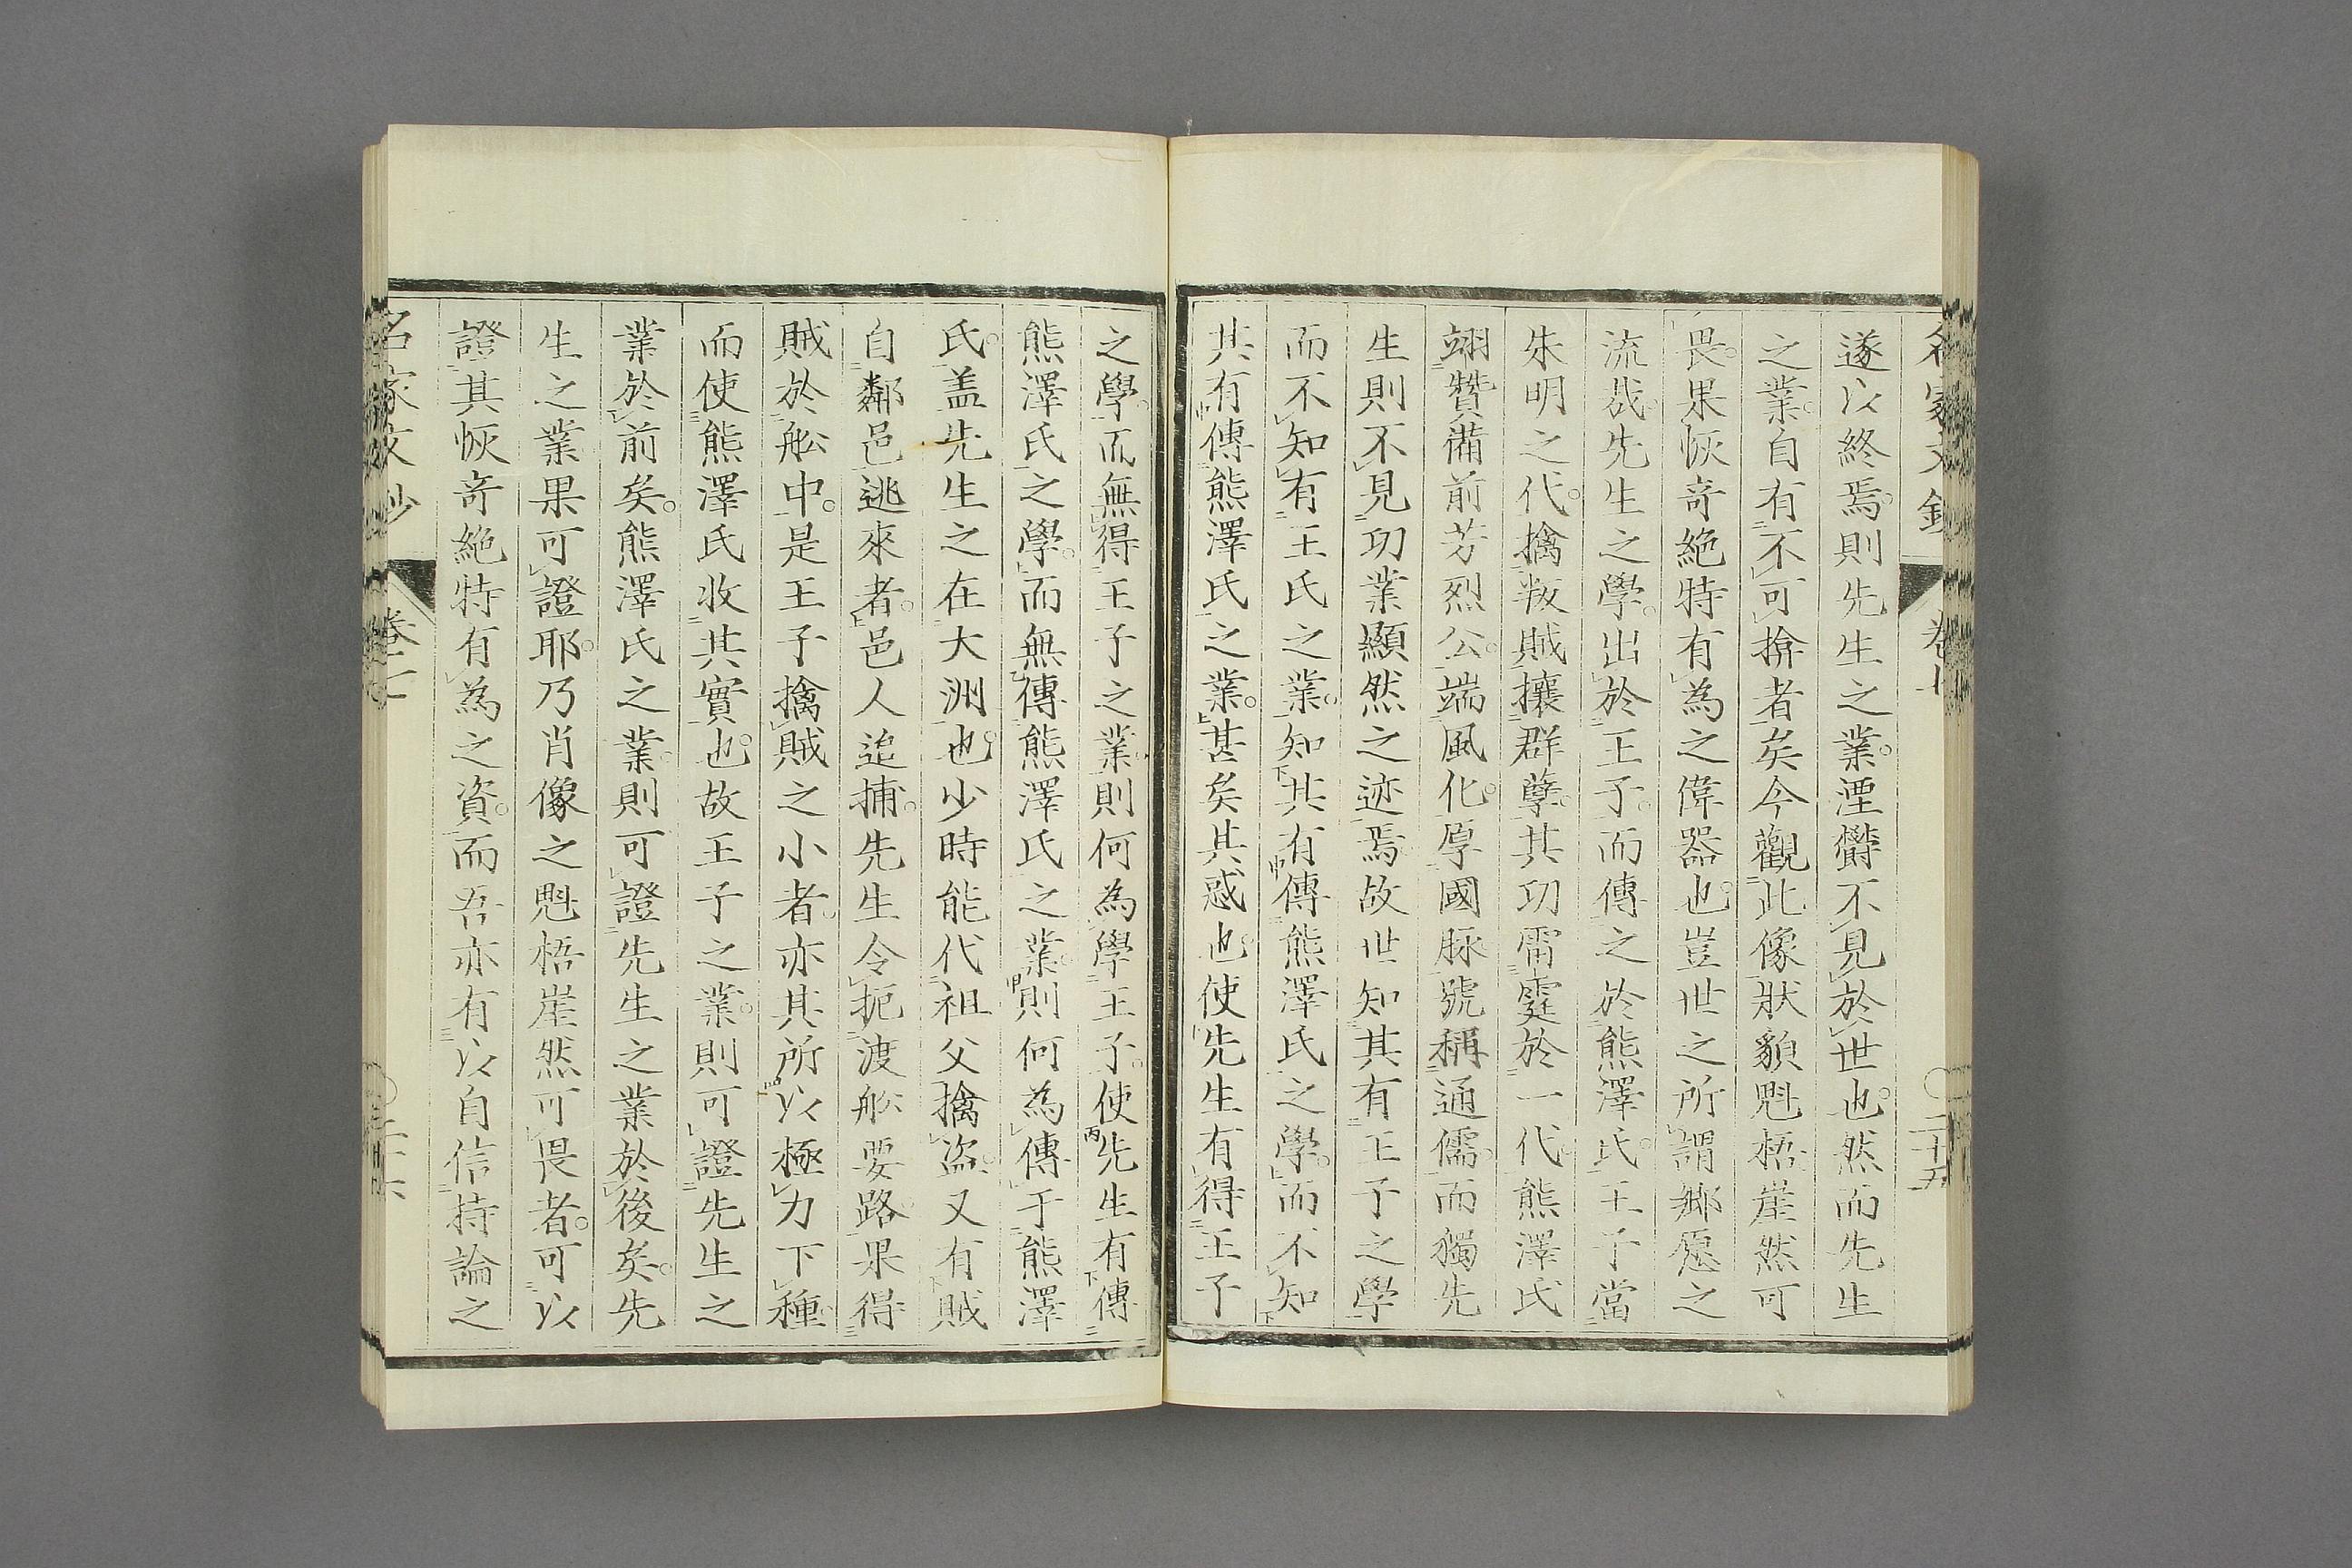 名家文鈔 卷七 二十五
遂以終焉。則先生之業。湮鬱不見於世也。然而先生
之業。自有不可揜者矣今觀此像狀貌魁梧崖然可
畏。果恢奇絶特有為之偉器也。豈世之所謂鄉愿之
流哉。先生之學。出於王子。而傳之於熊澤氏。王子當
朱明之代。擒叛賊攘群孽。其功雷霆於一代。熊澤氏
翊贊備前芳烈公。端風化。厚國脉。號稱通儒。而獨先
生則不見功業顯然之迹焉。故世知其有王子之學
而不知有王氏之業。知其有傳熊澤氏之學。而不知
其有傳熊澤氏之業。甚矣其惑也。使先生有得王子
之學。而無得王子之業。則何為學王子。使先生有傳
熊澤氏之學。而無傳熊澤氏之業。則何為傳于熊澤
氏。盖先生之在大洲也。少時能代祖父擒盗。又有賊
自鄰邑逃來者。邑人追捕。先生令扼渡舩要路。果得
賊於舩中。是王子擒賊之小者。亦其所以極力下種。
而使熊澤氏收其實也。故王子之業。則可證先生之
業於前矣。熊澤氏之業。則可證先生之業於後矣。先
生之業果可證耶。乃肖像之魁梧崖然可畏者。可以
證其恢奇絶特有為之資。而吾亦有以自信持論之
名家文鈔 卷七